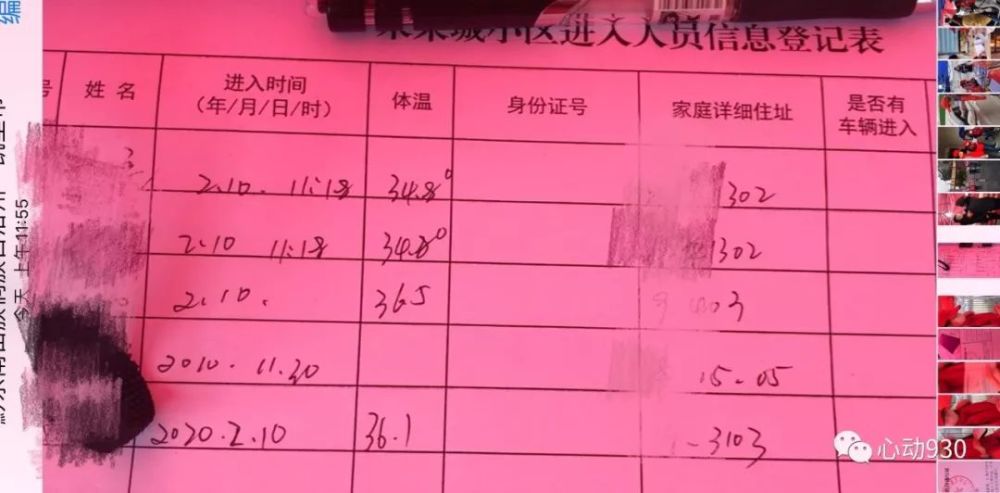 未来城小区进入人员信息登记表
号 姓 名 进入时间 体温 身份证号 家庭详细住址 是否有
（年/月/日/时） 车辆进入
2.10. 11:18 34.8° 302
2.10 11:18 34.8° 1302
2.10. 36.5 03
2010.11.30 15-05
2020.2.10 36.1 -3103
今天 上午11:55
心动930